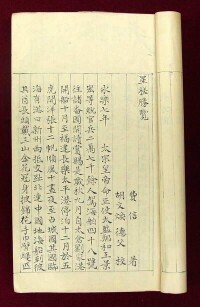 星槎勝覽
費信 著
永樂七年 太宗皇帝命正使太監鄭和王景
弘等統官兵二萬七千餘人駕海舶四十八號
往諸番國開讀賞賜是歲秋九月自太倉劉家港
開船十月至福建長樂太平港停泊十二月於五
虎開洋張十二帆順風十晝夜至占城國其國臨
海有港曰新州西抵交趾北連中國地海船到彼
其酋長頭戴三山金花冠身披錦花手巾臂腿